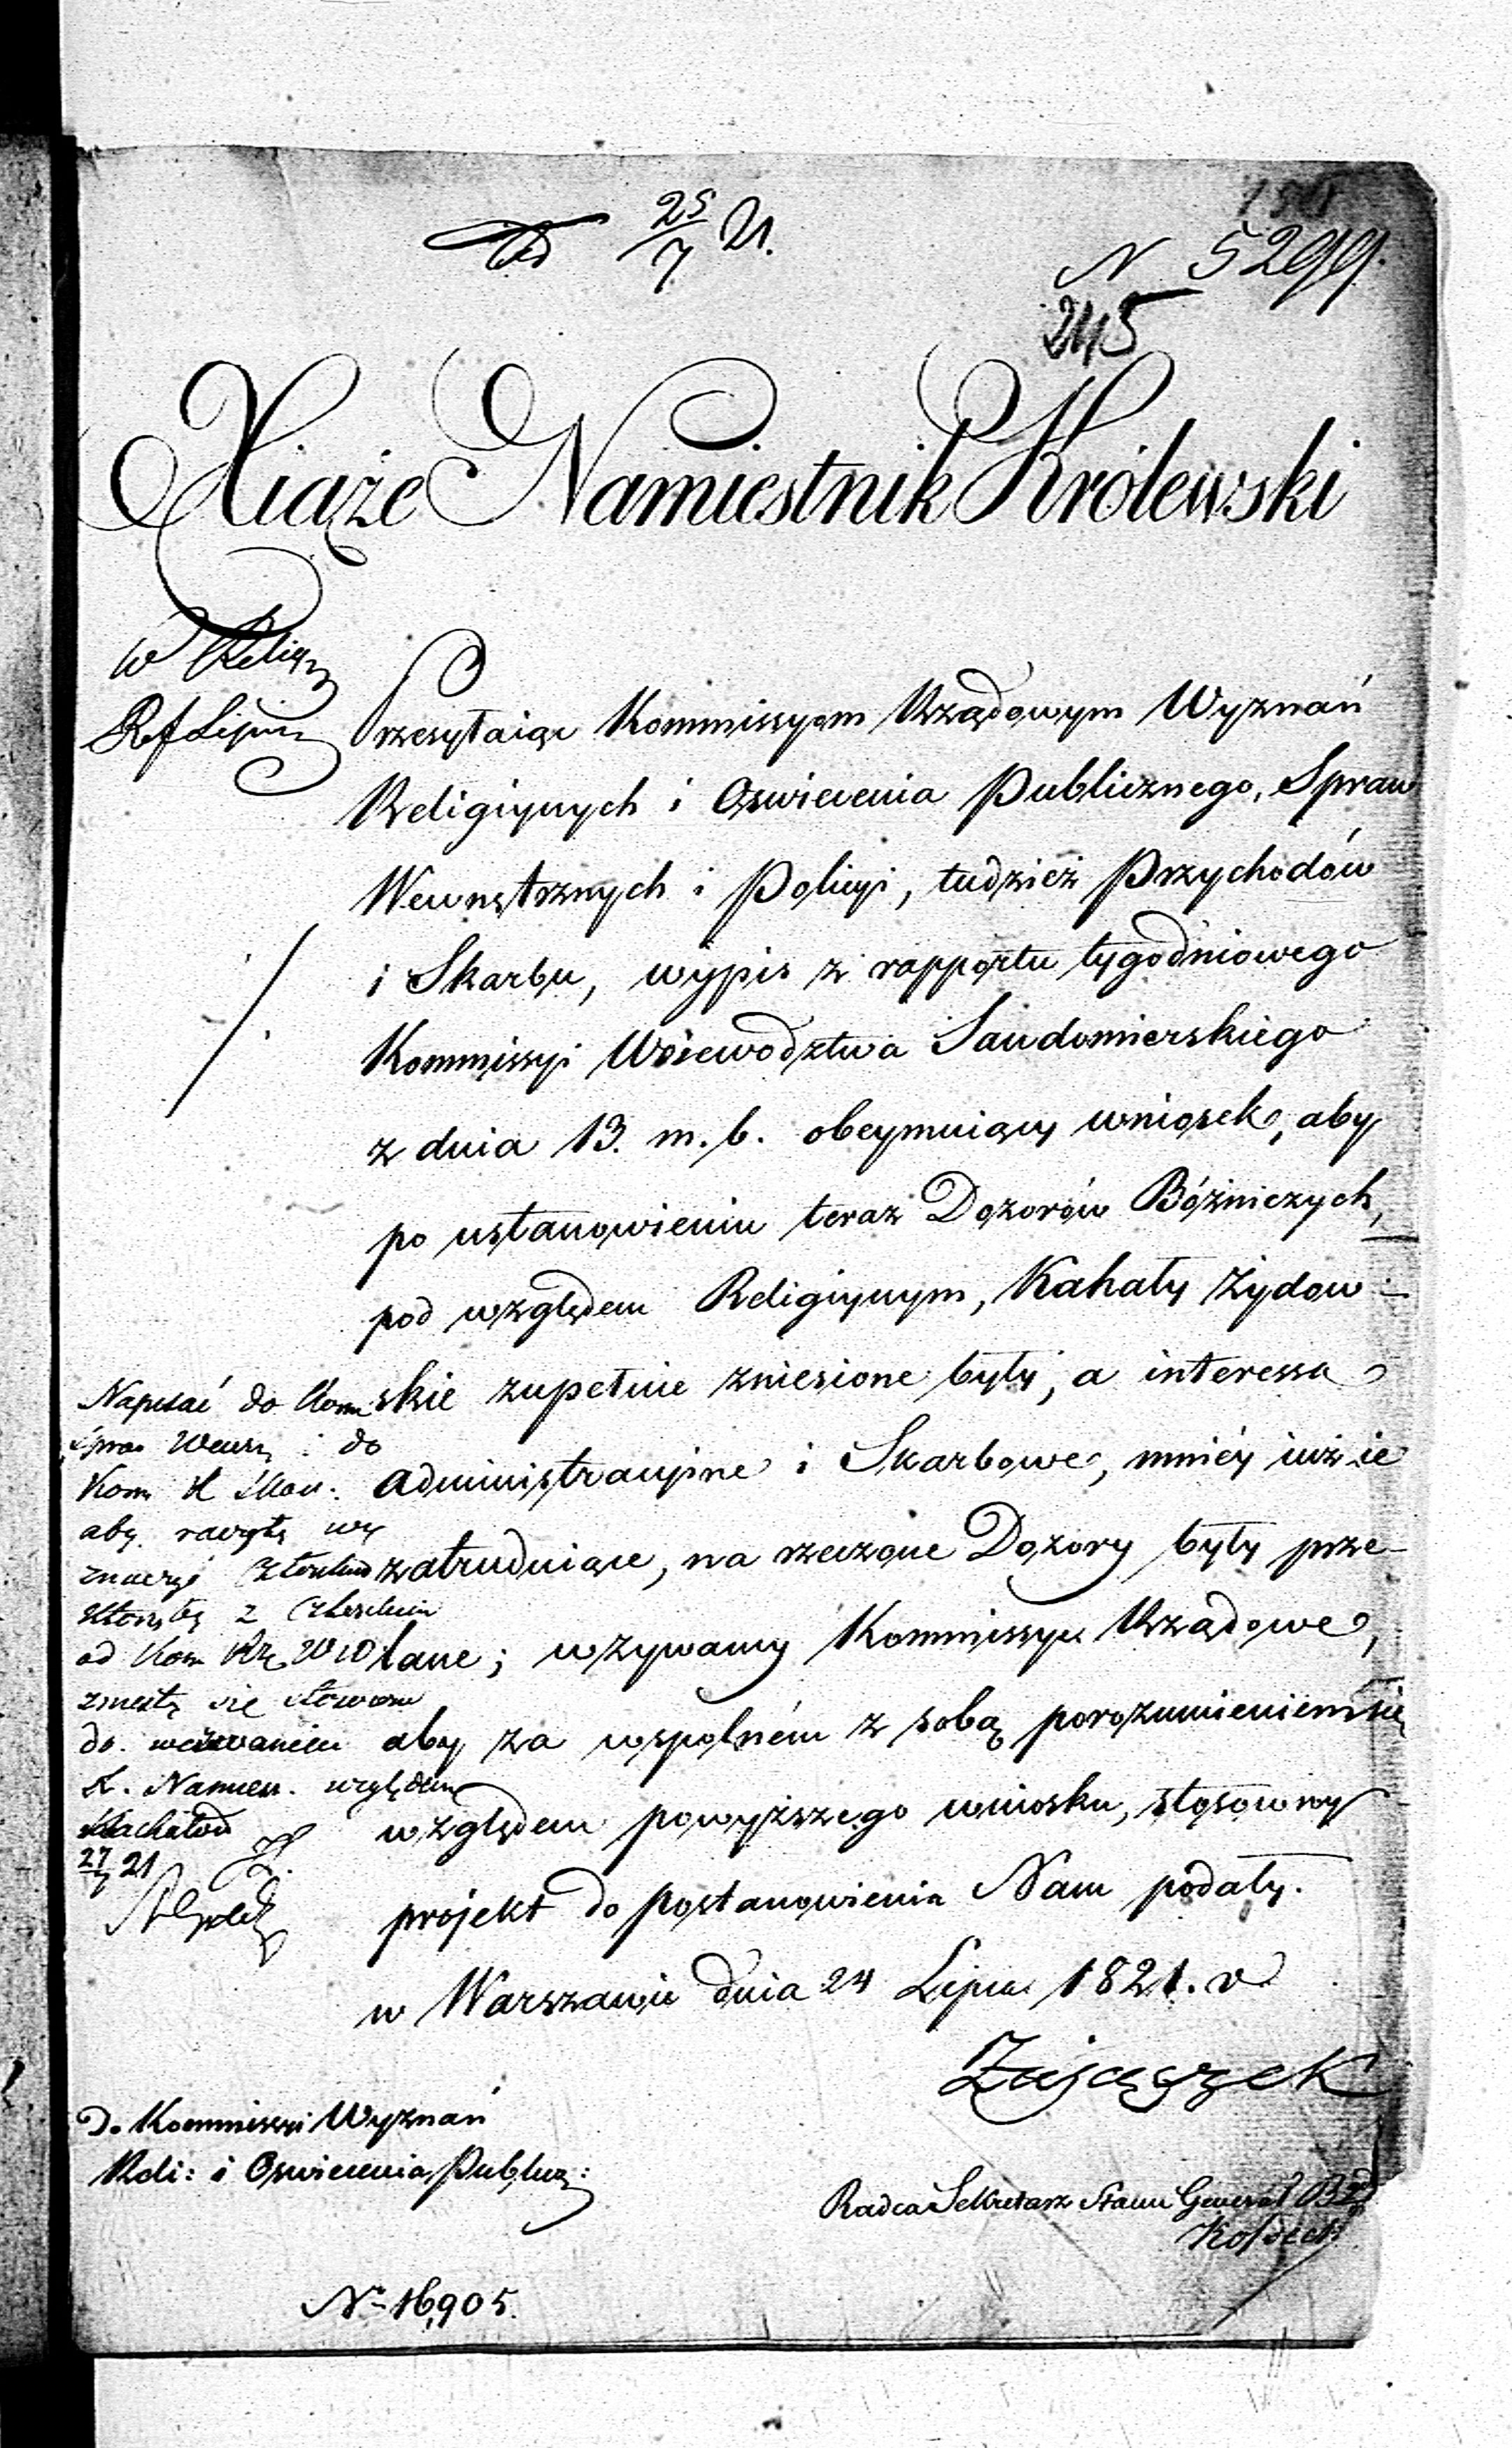 25/7 21.
N 5299.
245
Xiąże Namiestnik Królewski
W Relig
Ref Lipin
Przesyłaiąc Kommissyom Rządowym Wyznań
Religiynych i Oswiecenia Publicznego, Spraw
Wewnętrznych i Policyi, tudzież Przychodów
i Skarbu, wypis z rapportu tygodniowego
Kommissyi Woiewodztwa Sandomierskiego
z dnia 13. m. b. obeymuiący wniosek, aby
po ustanowieniu teraz Dozorów Bóżniczych,
pod względem Religiynym, Kahały żydow-
skie zupełnie zniesione były, a interessa
administracyine i Skarbowe, mniéy iuż ie
zatrudniaiące, na rzeczone Dozory były prze-
lane; wzywamy Kommissye Rządowe,
aby za wspolném z sobą porozumieniem się
względem powyższego wniosku, stosowny
projekt do postanowienia Nam podały.
w Warszawie dnia 24 Lipca 1821. r
Zajączek
Napisać do Kom
Spraw Wewn i do
Kom Skar.
aby raczyły wy
znaczyć Członków
z Członkiem
od Kom Rz W
się
do wezwaniem
X. Namies. względem
Kachałow
27/7 21
Do Kommissyi Wyznań
Reli: i Oswiecenia Publicz:
Radca Sekretarz Stanu Generał Bryd
Kossecki
N° 16,905.